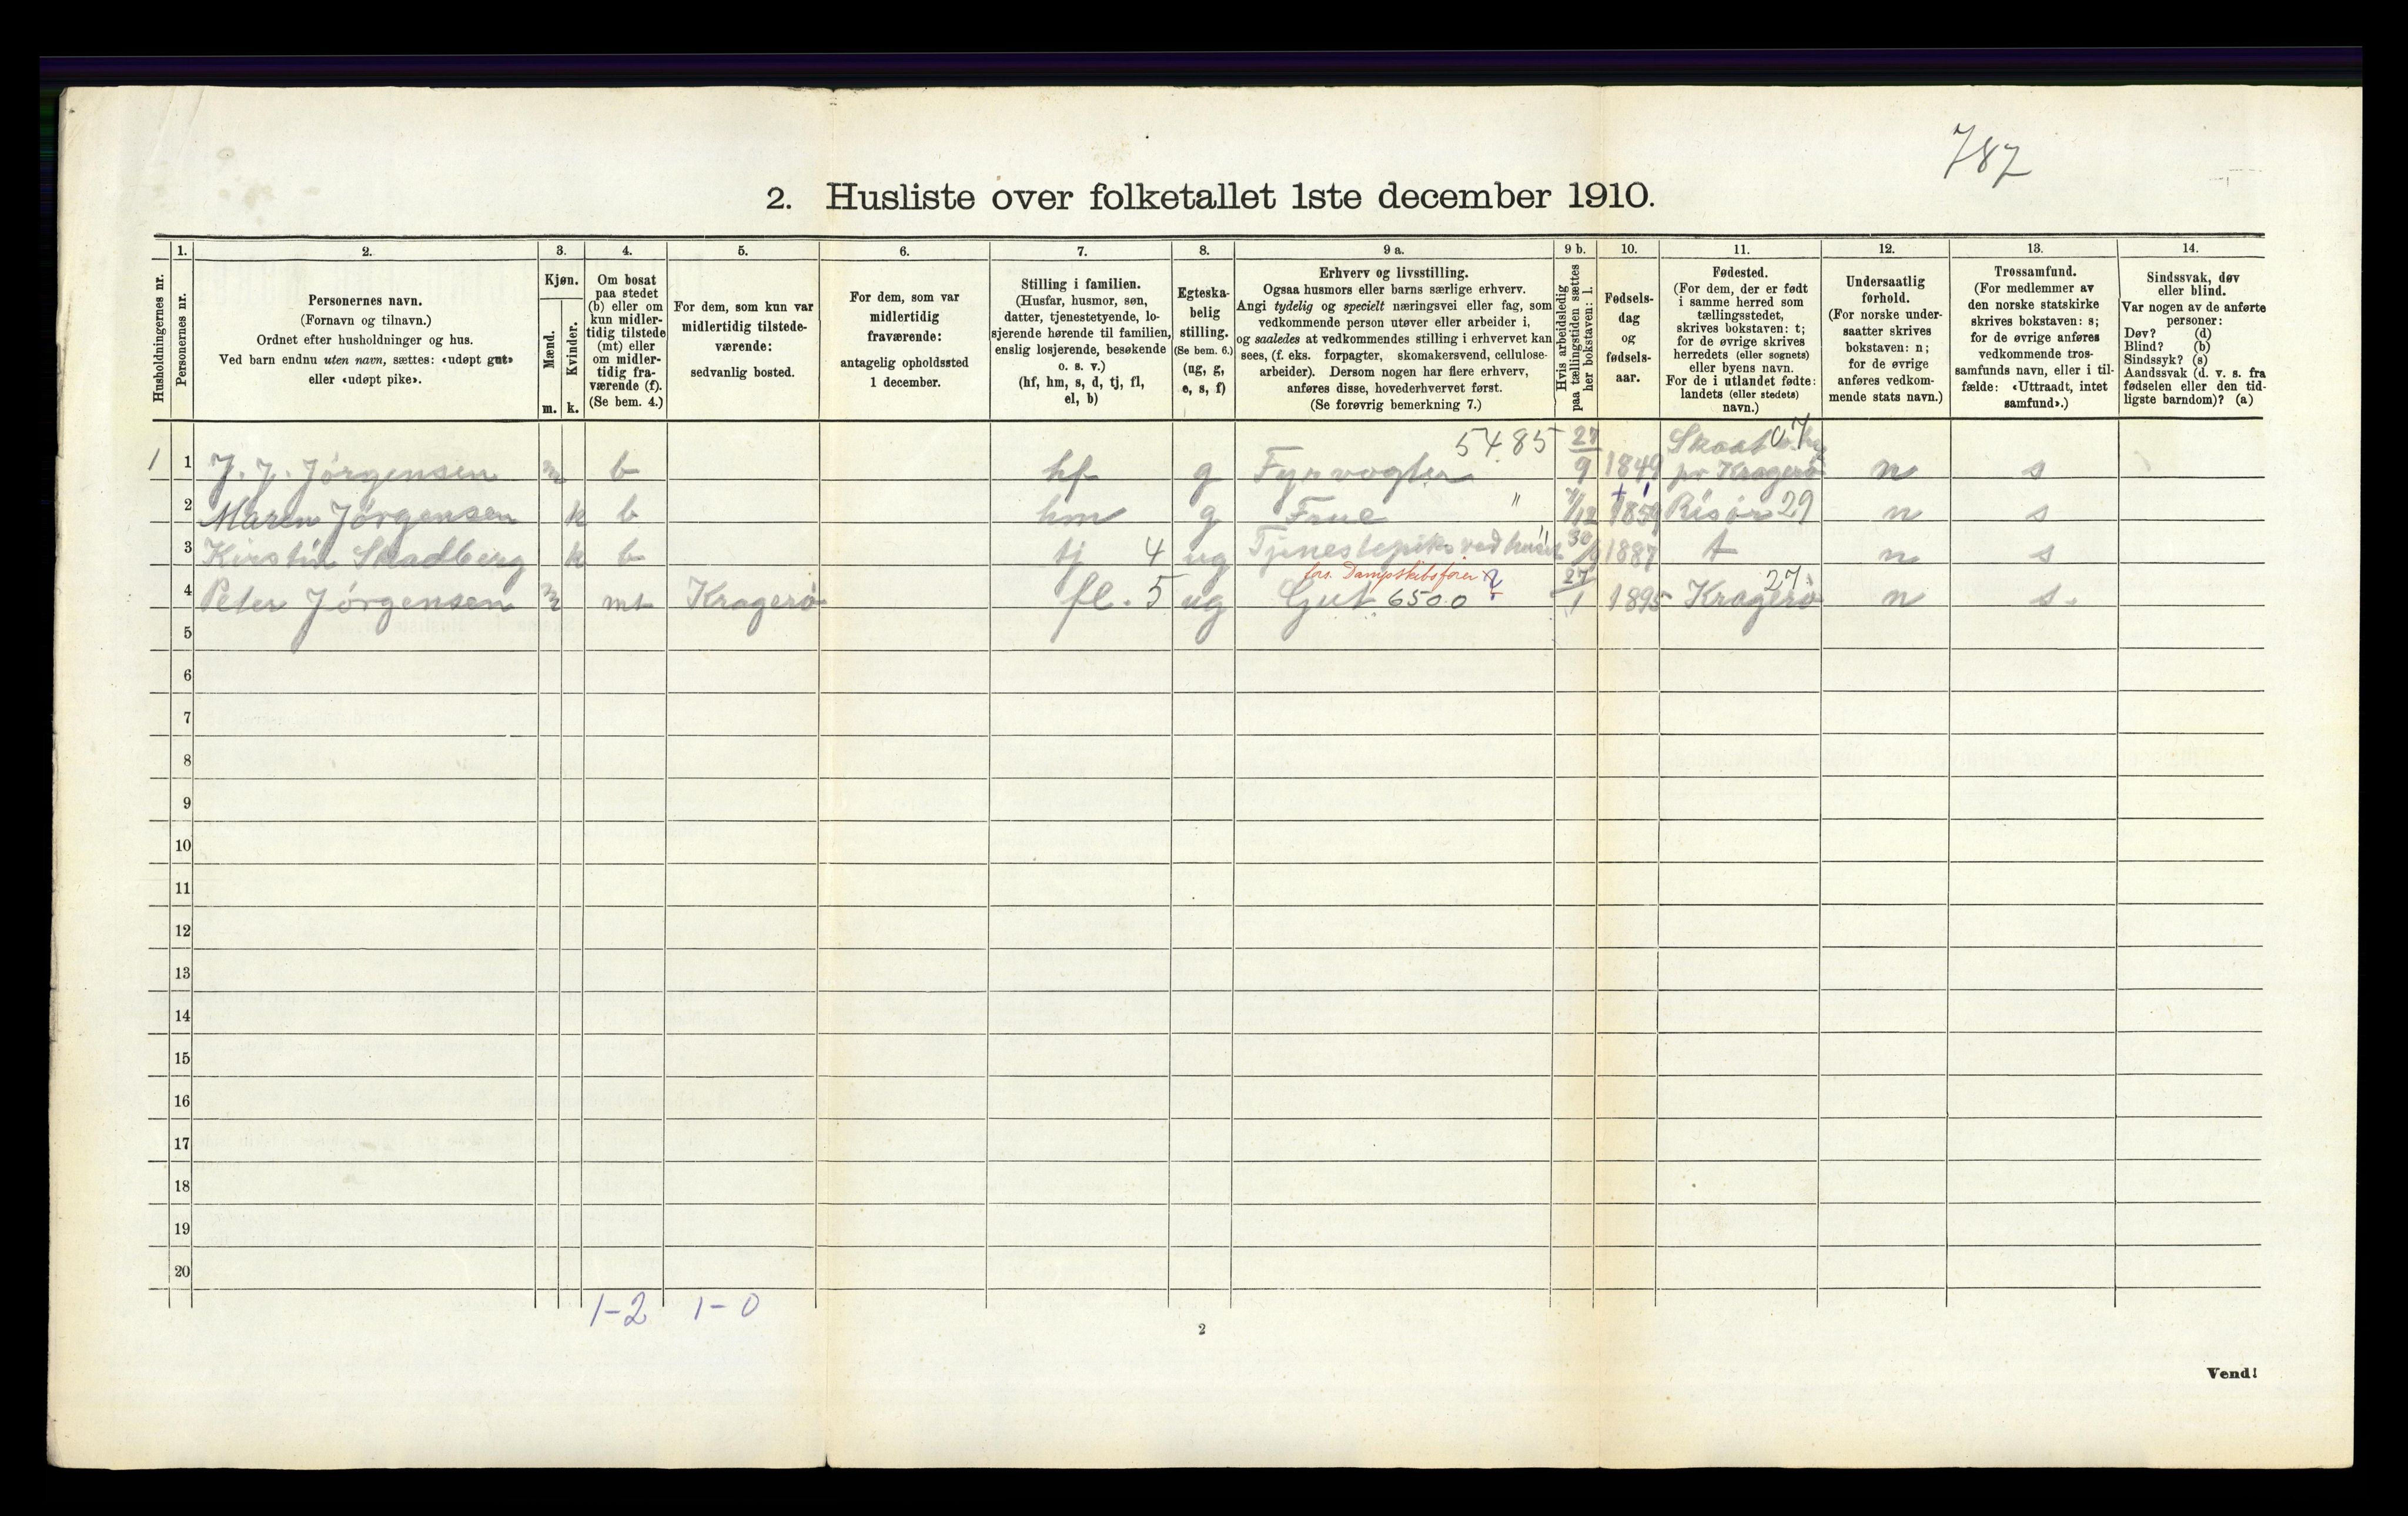 787
2. Husliste over folketallet 1ste december 1910.
Husholdningernes nr.
1.
Personernes nr.
2.
Personernes navn.
(Fornavn og tilnavn.)
Ordnet efter husholdninger og hus.
Ved barn endnu uten navn, sættes: «udøpt gut»
eller «udøpt pike».
3.
Kjøn.
Mænd.
Kvinder.
m. k.
4.
Om bosat
paa stedet
(b) eller om
kun midler-
tidig tilstede
(mt) eller
om midler-
tidig fra-
værende (f).
(Se bem. 4.)
5.
For dem, som kun var
midlertidig tilstede-
værende:
sedvanlig bosted.
6.
For dem, som var
midlertidig
fraværende:
antagelig opholdssted
1 december.
7.
Stilling i familien.
(Husfar, husmor, søn,
datter, tjenestetyende, lo-
sjerende hørende til familien,
enslig losjerende, besøkende
o. s. v.)
(hf, hm, s, d, tj, fl,
el, b)
8.
Egteska-
belig
stilling.
(Se bem. 6.)
(ug, g,
e, s, f)
9 a.
Erhverv og livsstilling.
Ogsaa husmors eller barns særlige erhverv.
Angi tydelig og specielt næringsvei eller fag, som
vedkommende person utøver eller arbeider i,
og saaledes at vedkommendes stilling i erhvervet kan
sees, (f. eks. forpagter, skomakersvend, cellulose-
arbeider). Dersom nogen har flere erhverv,
anføres disse, hovederhvervet først.
(Se forøvrig bemerkning 7.)
9 b.
Hvis arbeidsledig
paa tællingstiden sættes
her bokstaven: l.
10.
Fødsels-
dag
og
fødsels-
aar.
11.
Fødested.
(For dem, der er født
i samme herred som
tællingsstedet,
skrives bokstaven: t;
for de øvrige skrives
herredets (eller sognets)
eller byens navn.
For de i utlandet fødte:
landets (eller stedets)
navn.)
12.
Undersaatlig
forhold.
(For norske under-
saatter skrives
bokstaven: n;
for de øvrige
anføres vedkom-
mende stats navn.)
13.
Trossamfund.
(For medlemmer av
den norske statskirke
skrives bokstaven: s;
for de øvrige anføres
vedkommende tros-
samfunds navn, eller i til-
fælde: «Uttraadt, intet
samfund».)
14.
Sindssvak, døv
eller blind.
Var nogen av de anførte
personer:
Døv? (d)
Blind? (b)
Sindssyk? (s)
Aandssvak (d. v. s. fra
fødselen eller den tid-
ligste barndom)? (a)
5485 27 07
1 1 J. J. Jørgensen m b hf g Fyrvogter 9 1849 pr Kragerø n s
2 Maren Jørgensen k b hm g Frue " 1854 Risør 29 n s
3 Kirstin Skadberg k b tj 4 ug Tjenestepike ved huset 30/9 1887 t n s
fors. Dampskibsfører 27 27
4 Peter Jørgensen m mt Kragerø fl. 5 ug Gut 6500 1 1895 Kragerø n s.
5
6
7
8
9
10
11
12
13
14
15
16
17
18
19
20
1-2 1-0
2
Vend!